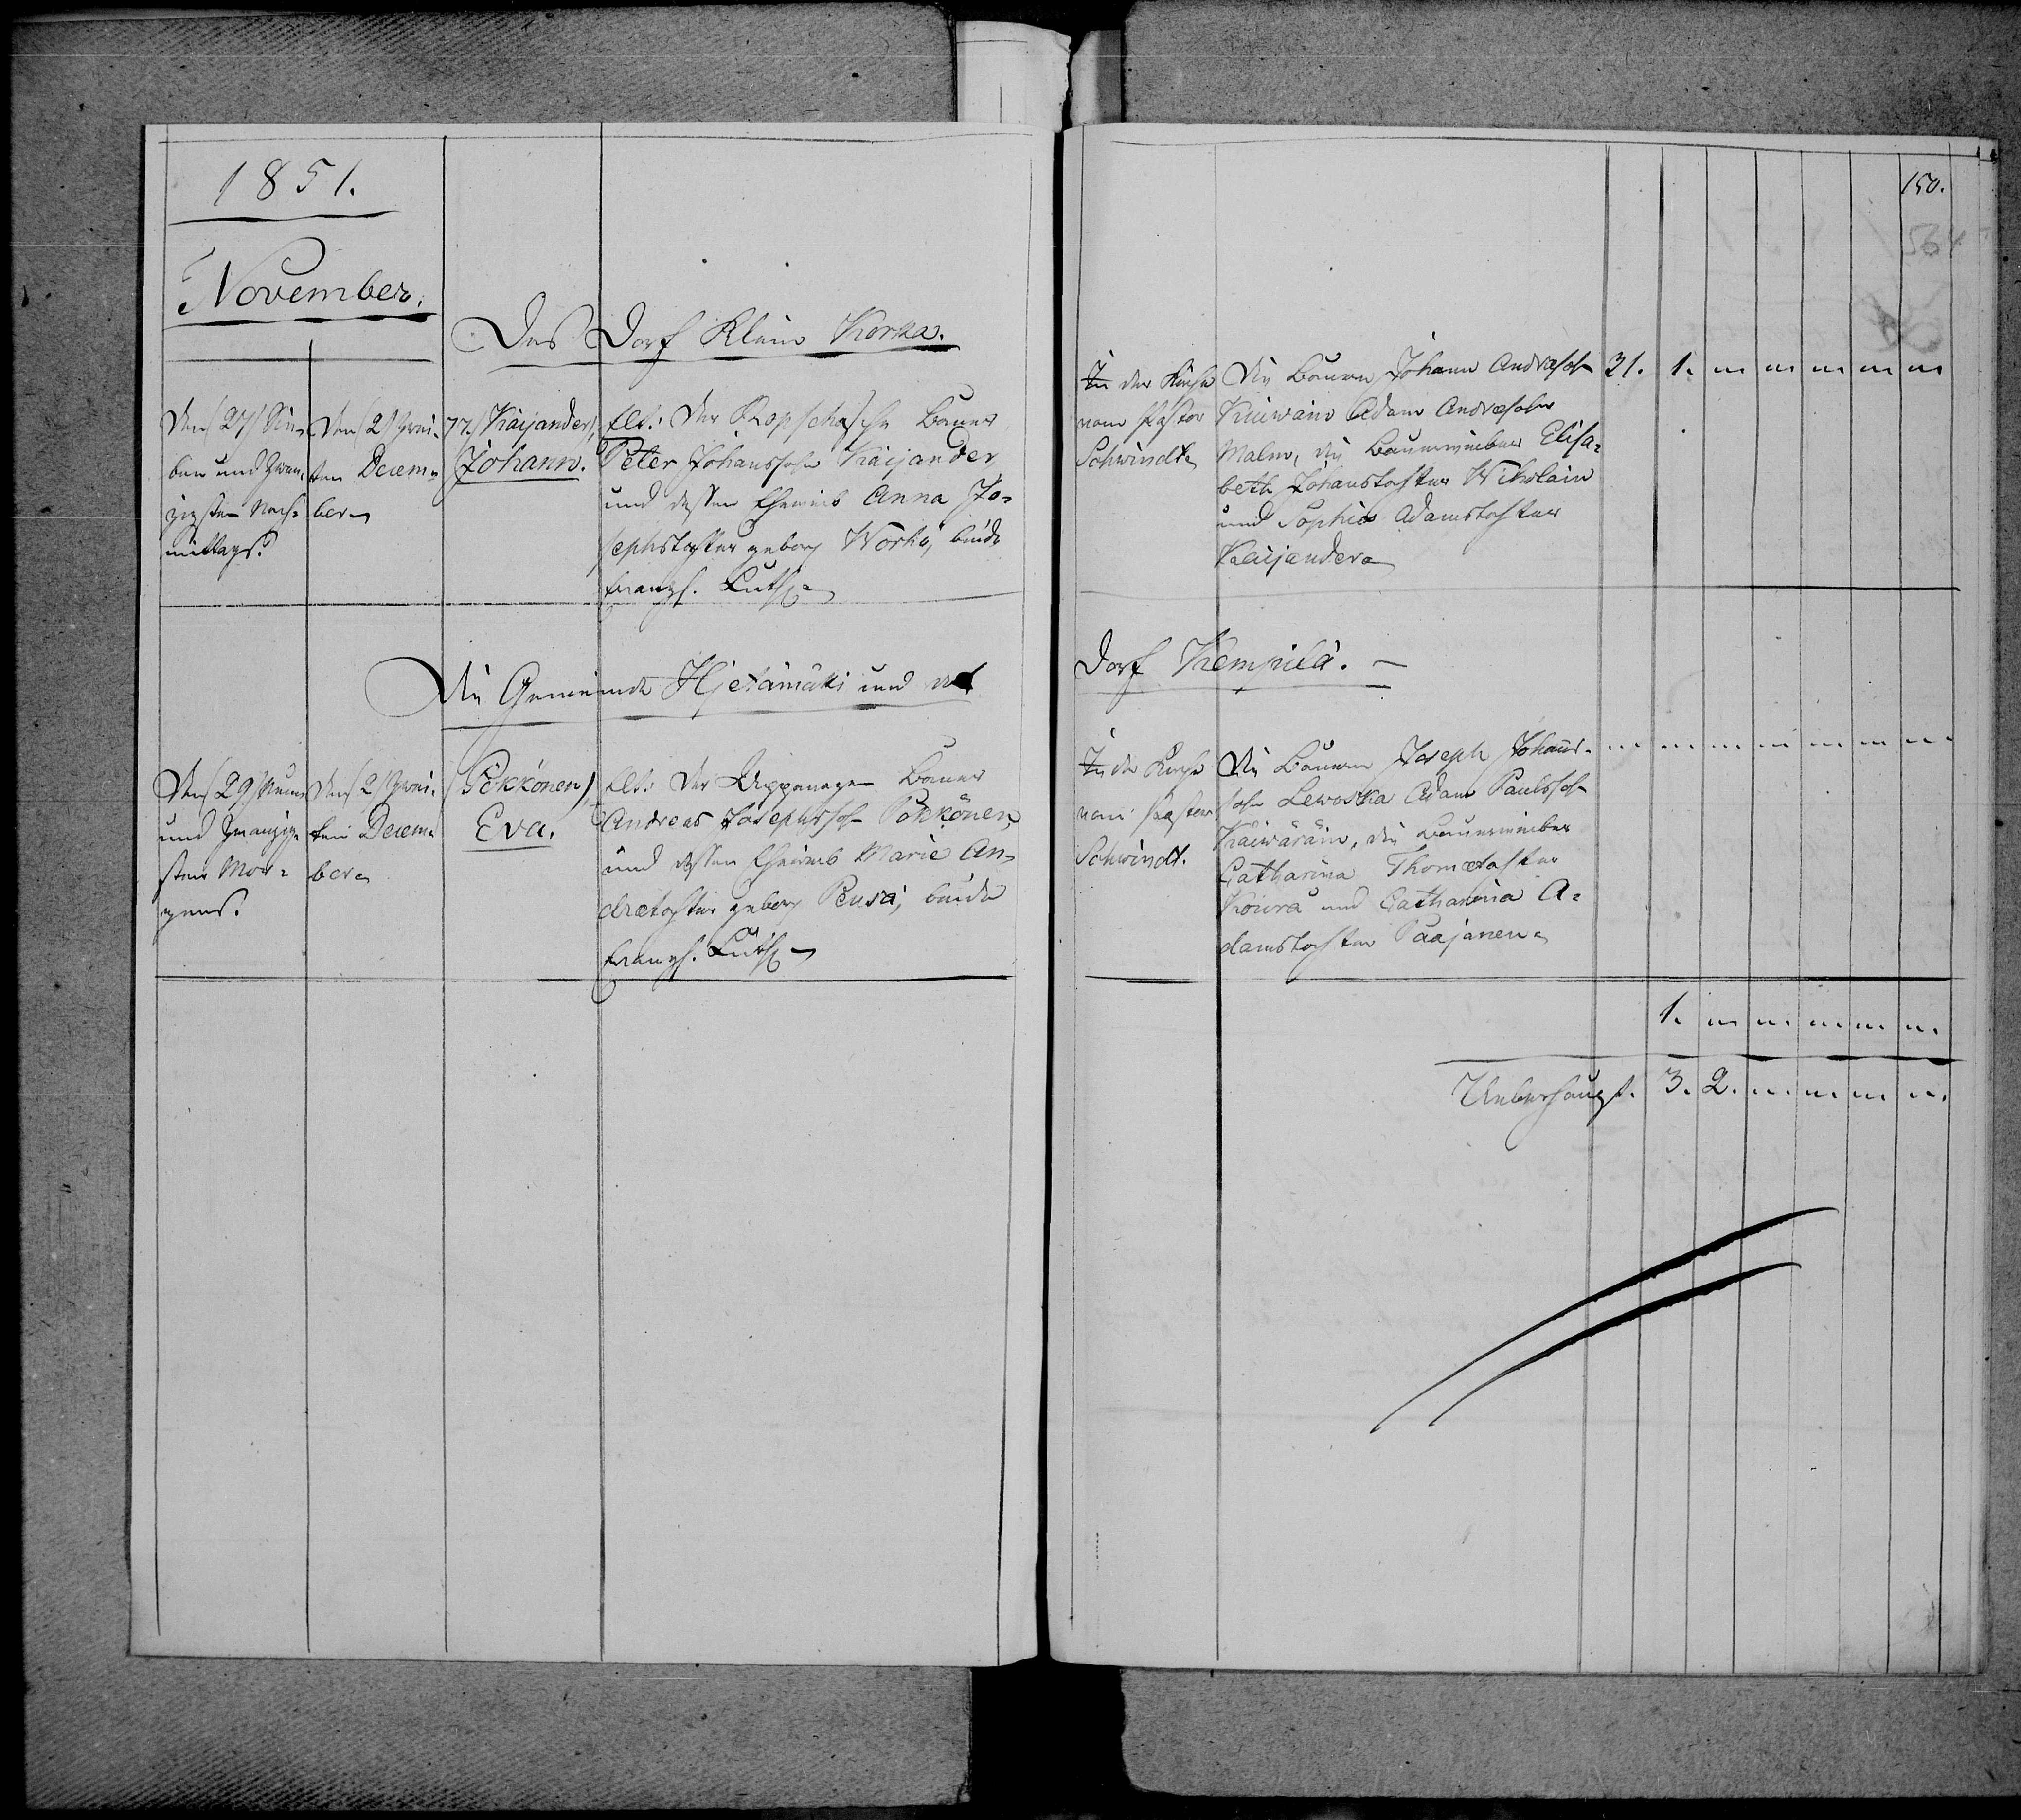 1851.
November.
Das Dorf Klein Korka.
Den 27 Sie-
ben und zwan-
zigsten Nach-
mittags.
Den 2 Zwei-
ten Decem-
ber
77. Käijander,
Johann.
Elt: Der Ropschasche Bauer
Peter Johanssohn Käijander
und dessen Eheweib Anna Jo-
sephstochter geborn Worho, beide
Evangl. Luth.
Die Gemeinde Hjetämäki und das
Den 29 Neun
und Zwanzig-
sten Mor-
gens.
Den 2 Zwei-
ten Decem-
ber
(Pökkönen),
Eva.
Elt: Der Appanagen Bauer
Andreas Josephssohn Pökkönen,
und dessen Eheweib Marie An-
dreætochter geborn Peusa, beide
Evangl. Luth.
150.
564
In der Kirche
vom Pastor
Schwindt
Die Bauern Johann Andreæsohn
Kiiwain Adam Andreæsohn
Malm, die Bauerweiber Elisa-
beth Johanstochter Wikolain
und Sophie Adamstochter
Käijander
31. 1. " " " " "
Dorf Kempilä.
In der Kirche
vom Pastor
Schwindt.
Die Bauern Joseph Johans-
sohn Lewoska Adam Paulssohn
Käiwäräin, die Bauerweiber
Catharina Thomætochter
Koiwra und Catharina A-
damstochter Paajanen
" " " " " " "
1. " " " " "
Ueberhaupt. 3. 2. " " " "